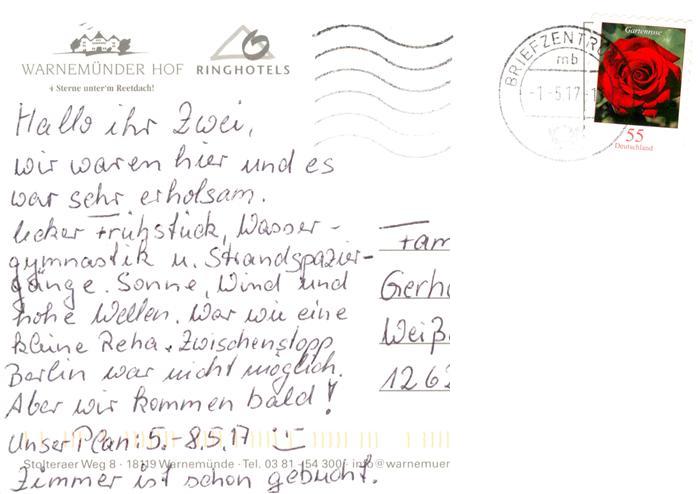 WARNEMÜNDER HOF
4 Sterne unter'm Reetdach!
RINGHOTELS
BRIEFZENTR
mb
-1-5.17-1
Gartenrose
55
Deutschland
Hallo ihr Zwei,
wir waren hier und es
war sehr erholsam.
lecker Frühstück, Wasser-
gymnastik u. Strandspazier-
gänge. Sonne, Wind und
hohe Wellen. War wie eine
kleine Reha. Zwischenstopp
Berlin war nicht möglich.
Aber wir kommen bald!
Unser Plan: 5.-8.5.17
Stolteraer Weg 8 · 18119 Warnemünde · Tel. 03 81 - 54 300 · info@warnemuer
Zimmer ist schon gebucht.
Fam
Gerh
Weiß
1262